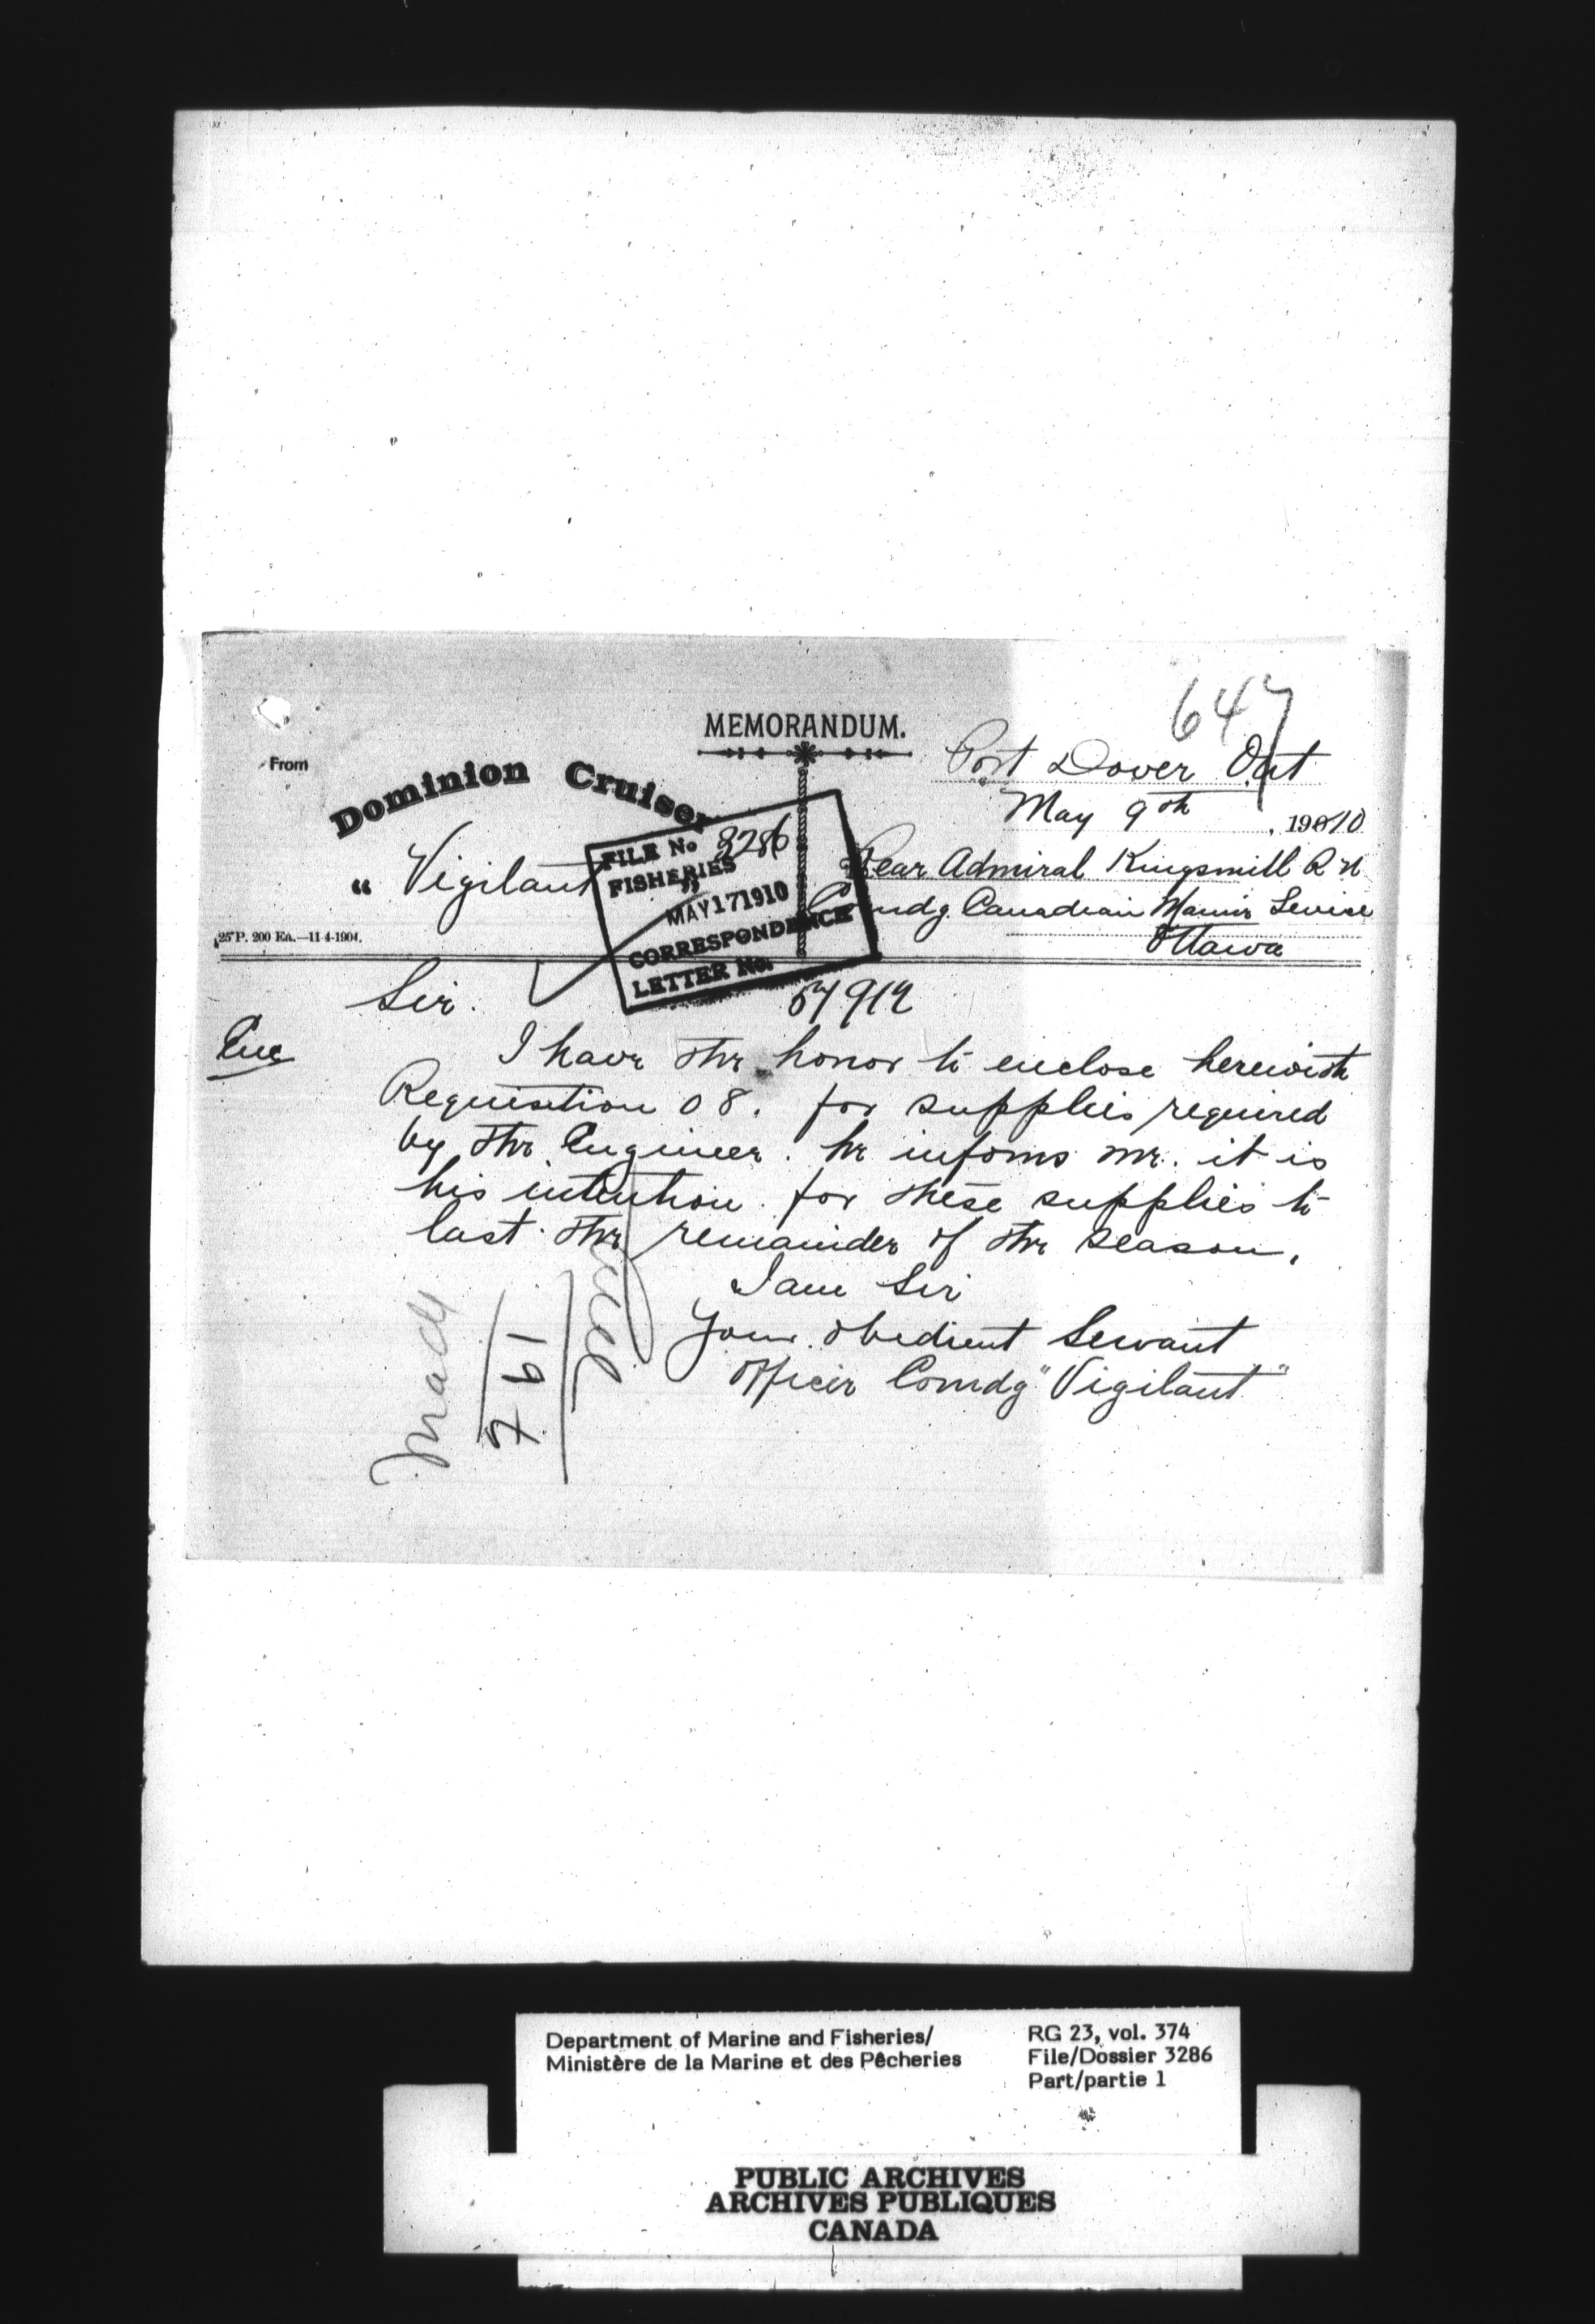 647
MEMORANDUM.
From
Dominion Cruiser
"Vigilant"
Port Dover Ont
May 9th, 1910
Rear Admiral Kingsmill R N
Comdg Canadian Marine Service
Ottawa
FILE No 3286
FISHERIES
MAY 17 1910
CORRESPONDENCE
LETTER No.
25 P. 200 Ea.—11-4-1904.
Sir.
Enc
I have the honor to enclose herewith
Requisition 08. for supplies required
by the Engineer. he informs me. it is
his intention for these supplies to
last the remainder of the season.
I am Sir
Your obedient Servant
Officer Comdg "Vigilant"
761
Department of Marine and Fisheries/
Ministère de la Marine et des Pêcheries
RG 23, vol. 374
File/Dossier 3286
Part/partie 1
PUBLIC ARCHIVES
ARCHIVES PUBLIQUES
CANADA